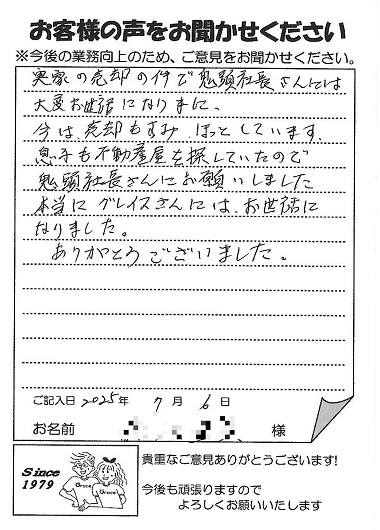 お客様の声をお聞かせください
※今後の業務向上のため、ご意見をお聞かせください。
実家の売却の件で鬼頭社長さんには
大変お世話になりました、
今は売却もすみ ほっとしています。
息子も不動産屋を探していたので
鬼頭社長さんにお願いしました
本当にグレイスさんには、お世話に
なりました。
ありがとうございました。
ご記入日 2025年 7月 6日
お名前 様
Since
1979
Grace
Grace
貴重なご意見ありがとうございます!
今後も頑張りますので
よろしくお願いいたします